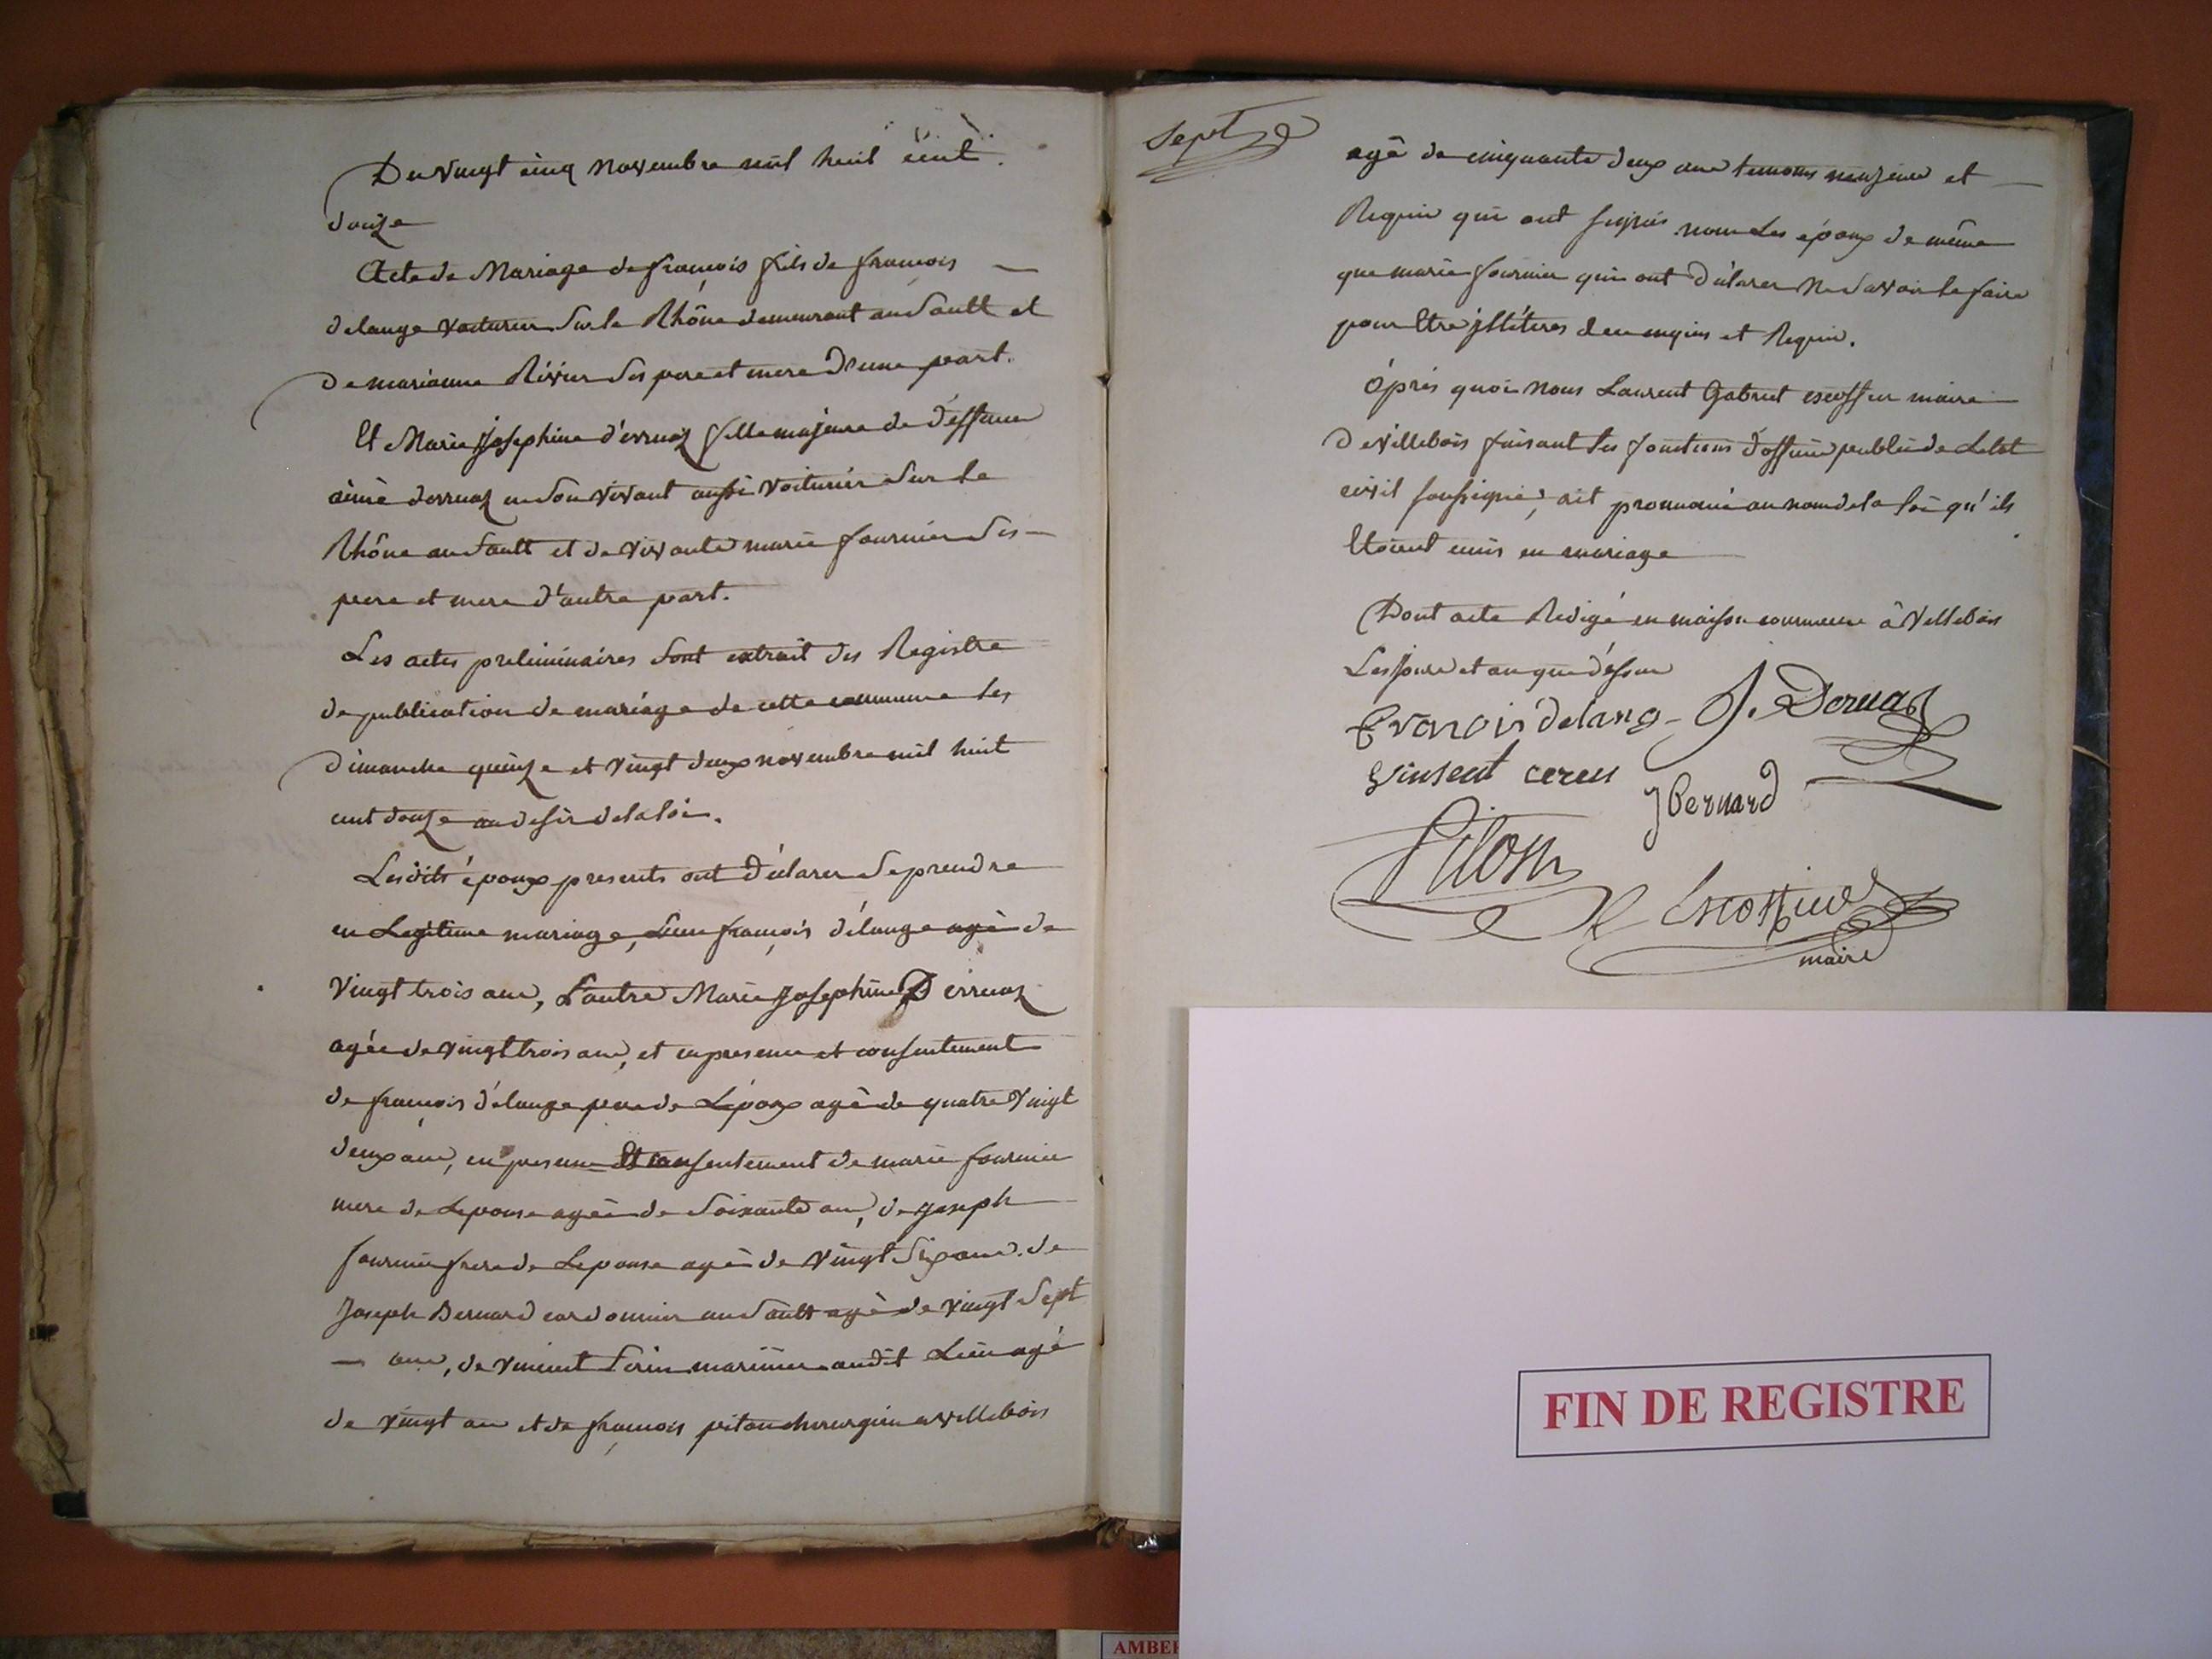 Du vingt cinq novembre mil huit cent
douze
Acte de Mariage de françois fils de francois
delange voiturier sur le Rhône demeurant au Sault et
de marianne Rivier ses pere et mere d'une part.
Et Marie Josephine d'erruaz fille majeure de deffunt
aimé derruaz en son vivant aussi voiturier sur le
Rhône au Sault et de vivante marie fournier ses
pere et mere d'autre part.
Les actes preliminaires sont extrait des Registre
de publication de mariage de cette commune les
dimanche quinze et vingt deux novembre mil huit
cent douze au desir de la loi.
Lesdits époux presents ont déclarer se prendre
en Legitime mariage, L'un françois délange agé de
vingt trois ans, L'autre Marie Josephine Derruaz
agée de vingt trois ans, et en presence et consentement
de françois délange pere de L'époux agé de quatre vingt
deux ans, en presence Et consentement de marie fournier
mere de L'epouse agée de soixante ans, de joseph
fournier frere de L'epouse agé de vingt six ans. de
Joseph Bernard cordonnier au Sault agé de vingt sept
ans, de vincent marinier audit Lieu agé
de vingt ans et de françois piton chirurgien a villebois
Sept
agé de cinquante deux ans temoins et
Requis qui ont signés non les époux de même
que marie fournier qui ont déclarer ne savoir le faire
pour Etre illiteres de ce enquis et Requis.
Après quoi nous Laurent Gabriel escoffier maire
de villebois faisant les fonctions d'officier public de L'etat
civil soussigné, ait prononcé au nom de la loi qu'ils
Etoient unis en mariage
Dont acte Redigé en maison commune à Villebois
Les jours et an que dessus
Francois delang J. Deruaz
Vinsent ceren JBernard
Pilon
Escoffier
maire
FIN DE REGISTRE